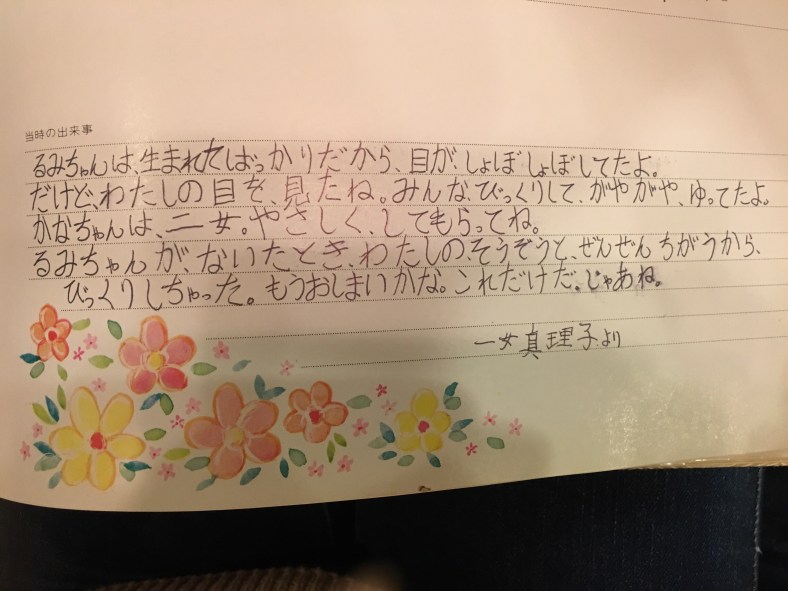 当時の出来事
るみちゃんは、生まれたばっかりだから、目が、しょぼしょぼしてたよ。
だけど、わたしの目を、見たね。みんな、びっくりして、がやがや、ゆってたよ。
かなちゃんは、二女。やさしく、してもらってね。
るみちゃんが、ないたとき、わたしの、そうぞうと、ぜんぜんちがうから、
びっくりしちゃった。もうおしまいかな。これだけだ。じゃあね。
一女真理子より